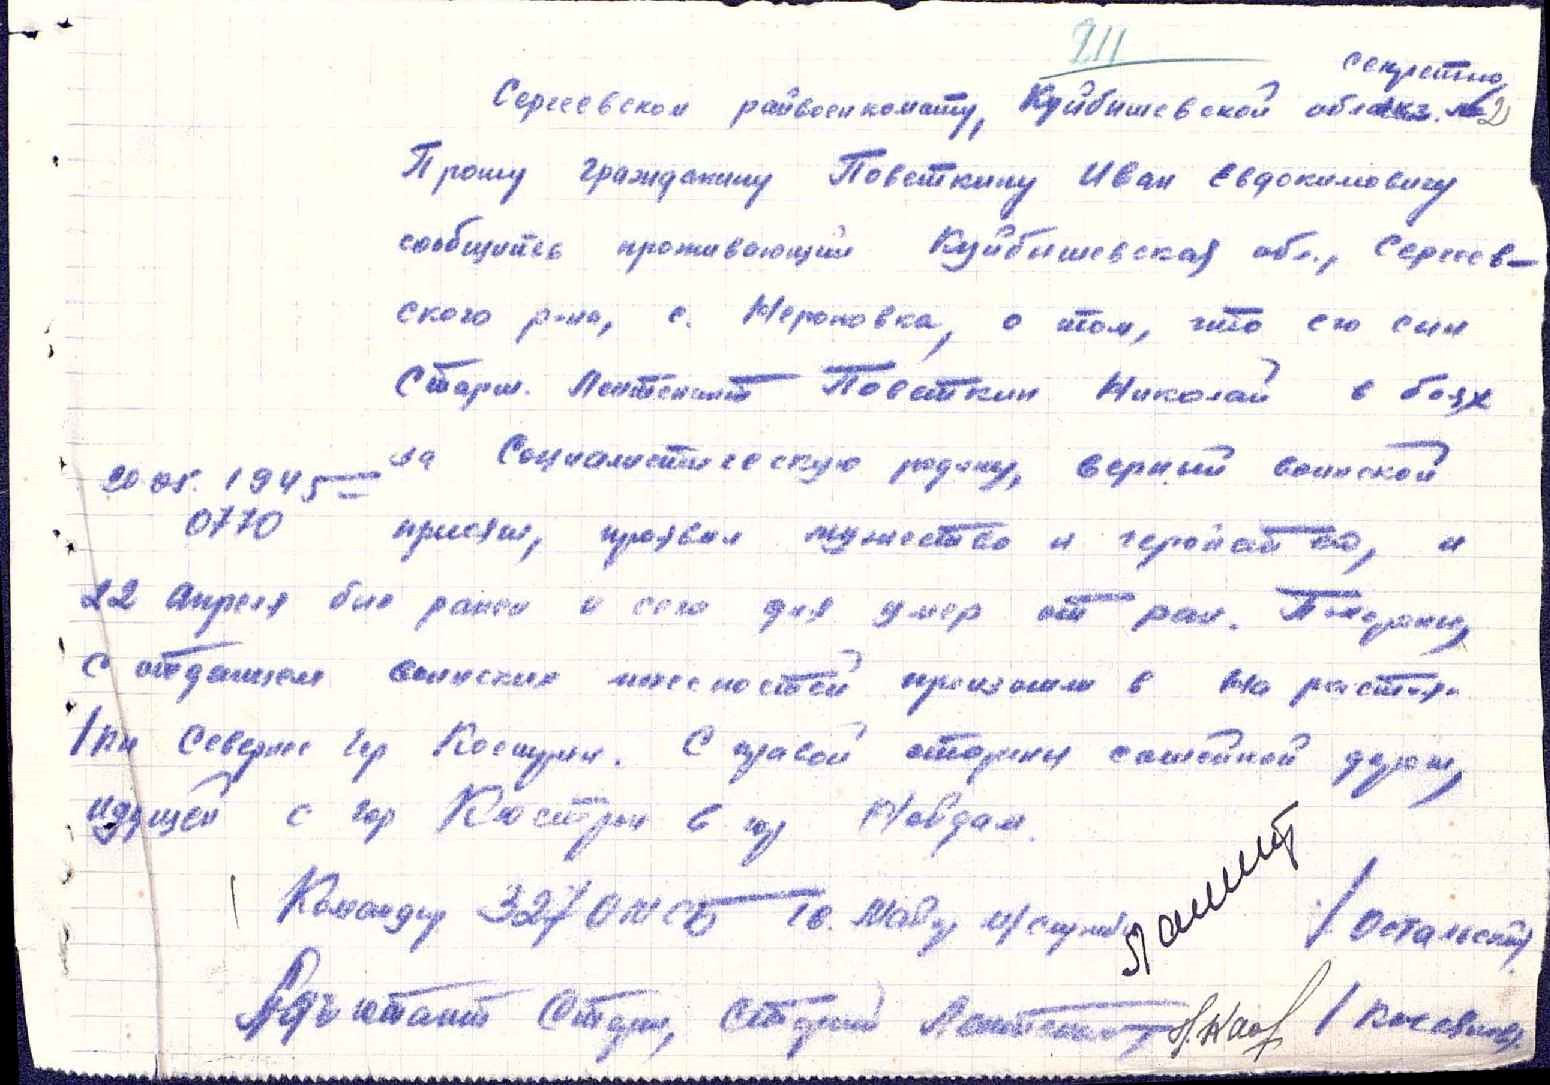 211
секретно
Сергеевском райвоенкомату, Куйбишевской
Прошу гражданину Поветкину Иван Евдокимовичу
сообщить проживающий Куйбышевская обл., Сергеев-
ского р-на, с. Нероновка, о том, что его сын
Старш. Лейтенант Поветкин Николай в боях
за Социалистическую родину, верный воинской
20.05.1945
0770
присяги, проявил мужество и геройство, и
22 Апреля был ранен и сего дня умер от ран. Похороны,
с отданием воинских почестностей произошли в
Севернее гор Кострин. С правой стороны дороги,
идущей с гор Кюстрин в гор Новдам.
Командир 327 ОМСБ Гв. Майор М/службы
Адъютант Старш, Старший Лейтенант